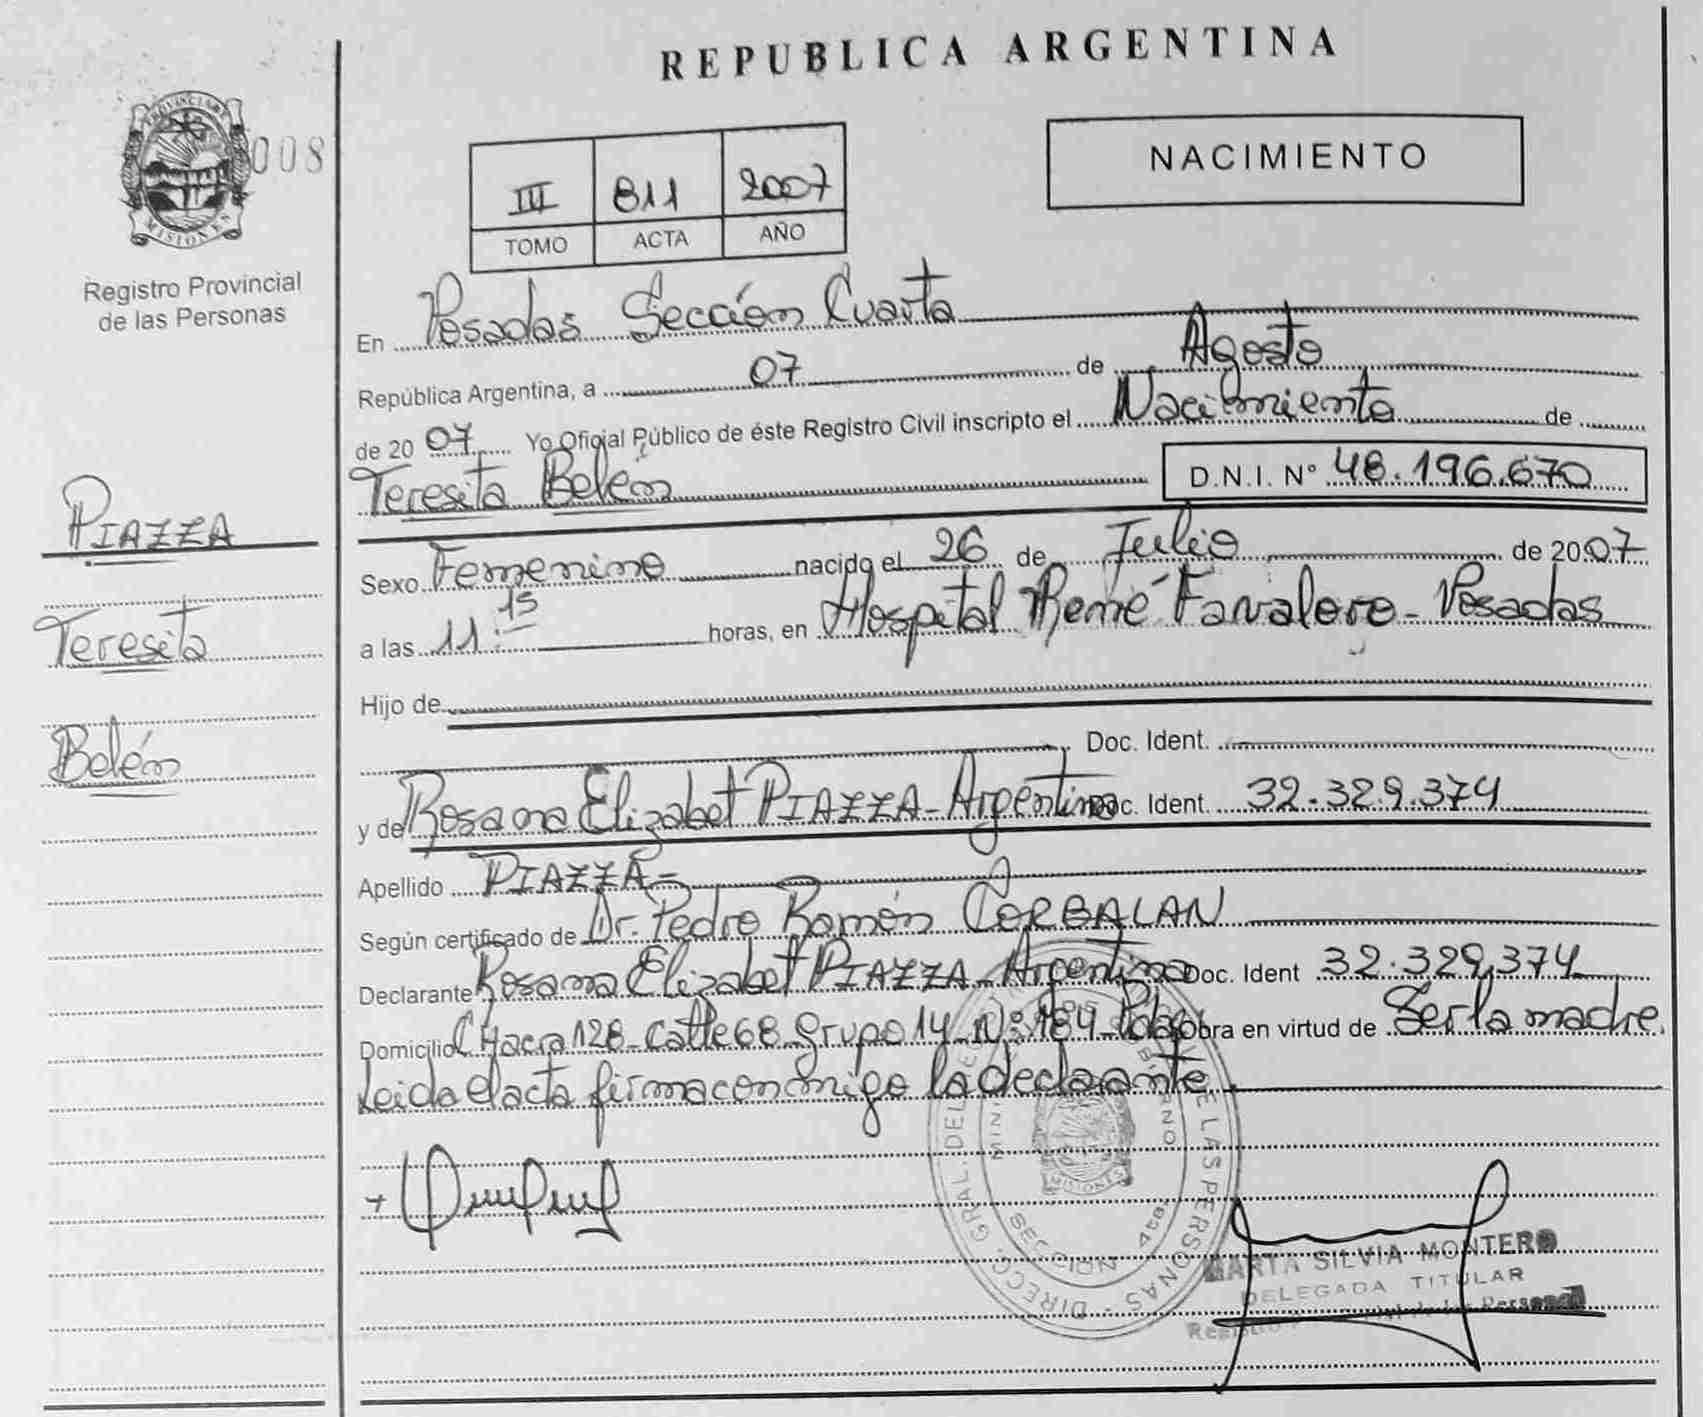 REPUBLICA ARGENTINA
PROVINCIA DE
MISIONES
008
Registro Provincial
de las Personas
III 811 2007
TOMO ACTA AÑO
NACIMIENTO
En Posadas Sección Cuarta
República Argentina, a 07 de Agosto
de 2007 Yo Oficial Público de éste Registro Civil inscripto el Nacimiento de
Teresita Belén D.N.I. Nº 48.196.670
PIAZZA
Teresita
Belén
Sexo Femenino nacido el 26 de Julio de 2007
a las 11:15 horas, en Hospital René Favaloro - Posadas
Hijo de
Doc. Ident.
y de Rosana Elizabet PIAZZA - Argentina Doc. Ident. 32.329.374
Apellido PIAZZA=
Según certificado de Dr. Pedro Ramón CORBALAN
Declarante Rosana Elizabet PIAZZA - Argentina Doc. Ident 32.329.374
Domicilio CHacra 128 - Calle 68 Grupo 14 - Nº 184 - Pdas Obra en virtud de Ser la madre.
Leida el acta firma conmigo la declarante
DIRECC. GRAL. DEL DE LAS PERSONAS
SECCION 4ta
MISIONES
MARTA SILVIA MONTERO
DELEGADA TITULAR
de las Personas